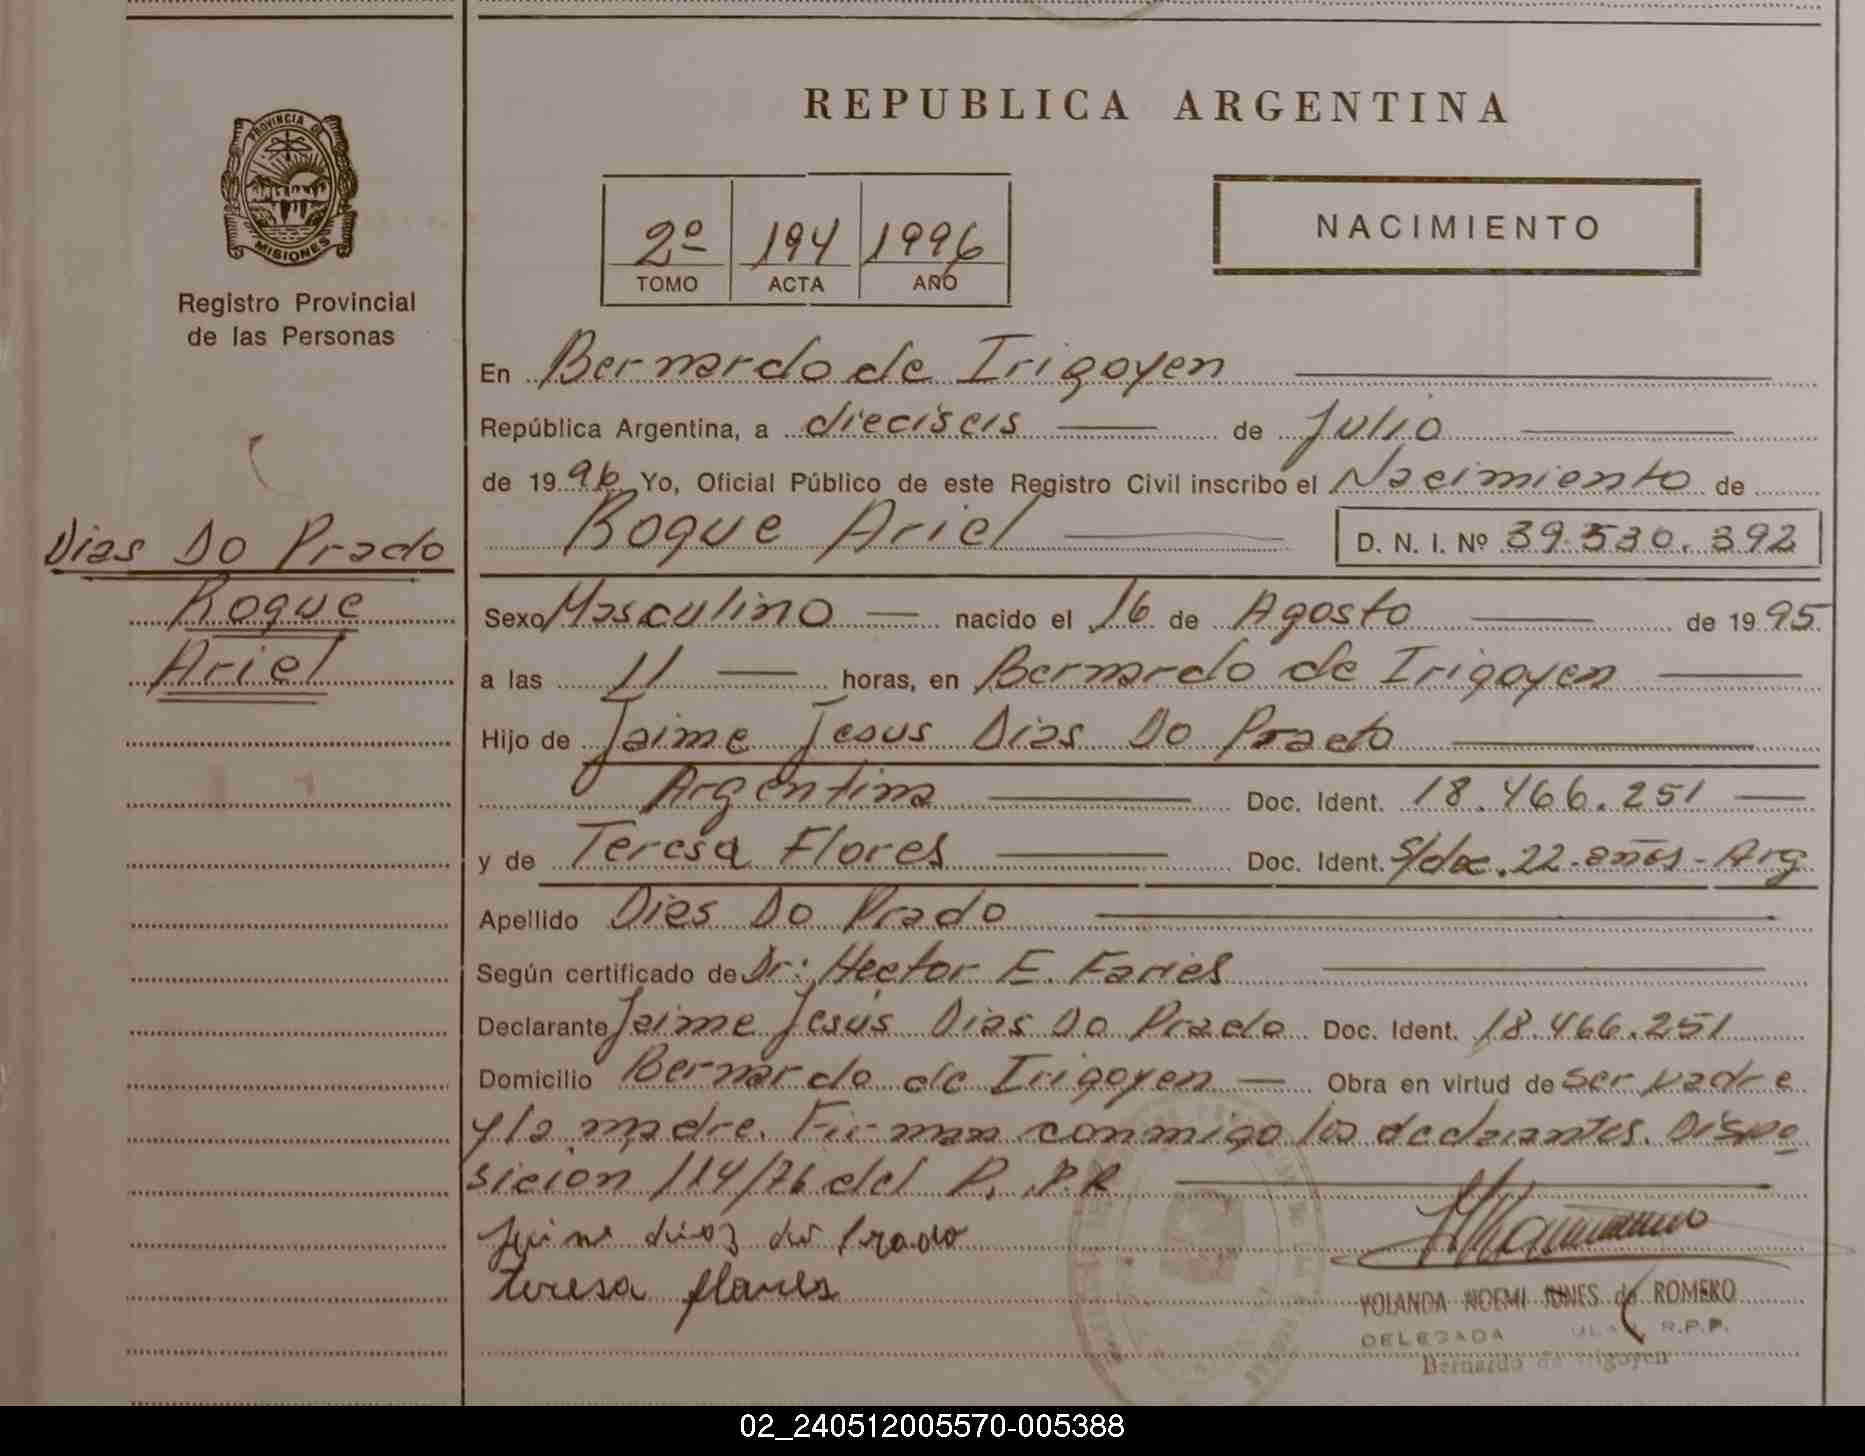 REPUBLICA ARGENTINA
PROVINCIA DE
MISIONES
Registro Provincial
de las Personas
2º 194 1996
TOMO ACTA AÑO
NACIMIENTO
En Bernardo de Irigoyen
República Argentina, a dieciseis de Julio
de 1996 Yo, Oficial Público de este Registro Civil inscribo el Nacimiento de
Roque Ariel D. N. I. Nº 39.530.392
Dias Do Prado
Roque
Ariel
Sexo Masculino nacido el 16 de Agosto de 1995
a las 11 horas, en Bernardo de Irigoyen
Hijo de Jaime Jesus Dias Do Prado
Argentina Doc. Ident. 18.466.251
y de Teresa Flores Doc. Ident. S/doc. 22-años-Arg
Apellido Dias Do Prado
Según certificado de Dr: Hector E.
Declarante Jaime Jesús Dias Do Prado Doc. Ident. 18.466.251
Domicilio Bernardo de Irigoyen Obra en virtud de ser padre
y la madre. Firman conmigo los declarantes. Dispo
sicion 114/76 del R.P.P.
teresa flores
YOLANDA NOEMI de ROMERO
DELEGADA R.P.P.
Bernardo de Irigoyen
02_240512005570-005388